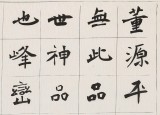 董源平
無此品
世神品
也峰巒